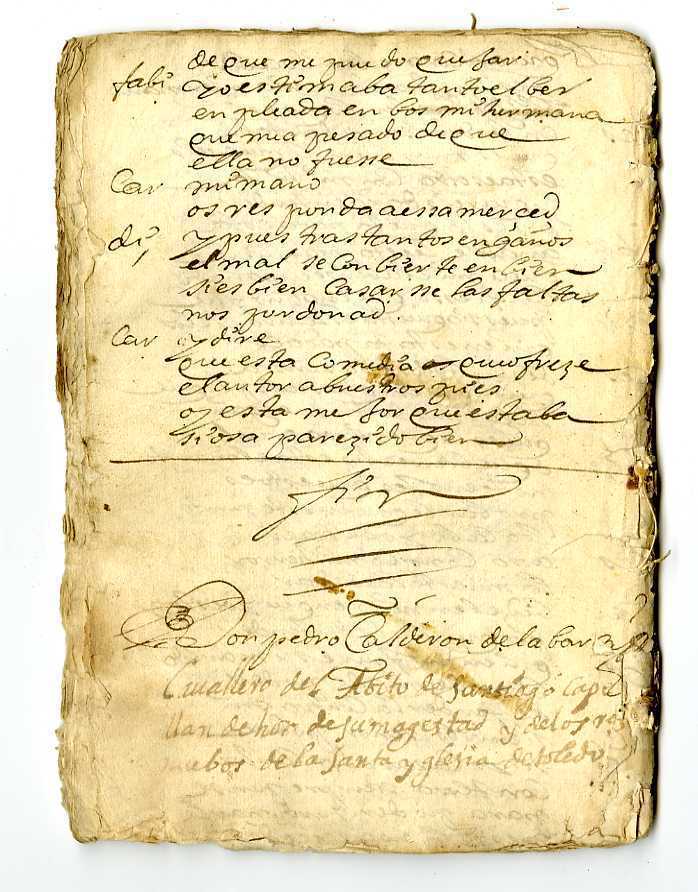 de que me puedo quejar
fabi yo estimaba tanto el ber
enpleada en bos mi hermana
que mea pesado de que
ella no fuesse
Car mi mano
os responda a essa merced
di, y pues tras tantos engaños
el mal se conbierte en bien
si es bien casarsse las faltas
nos perdonad.
Car y dire
que esta Comedia os ofreze
el autor a buestros pies
os esta mejor que estaba
si os a parezido bien
fin
Don pedro Calderon de la barca
Cavallero del Abito de Santiago Cape
llan de hor de su magestad y de los re
nuebos de la Santa yglesia de toledo